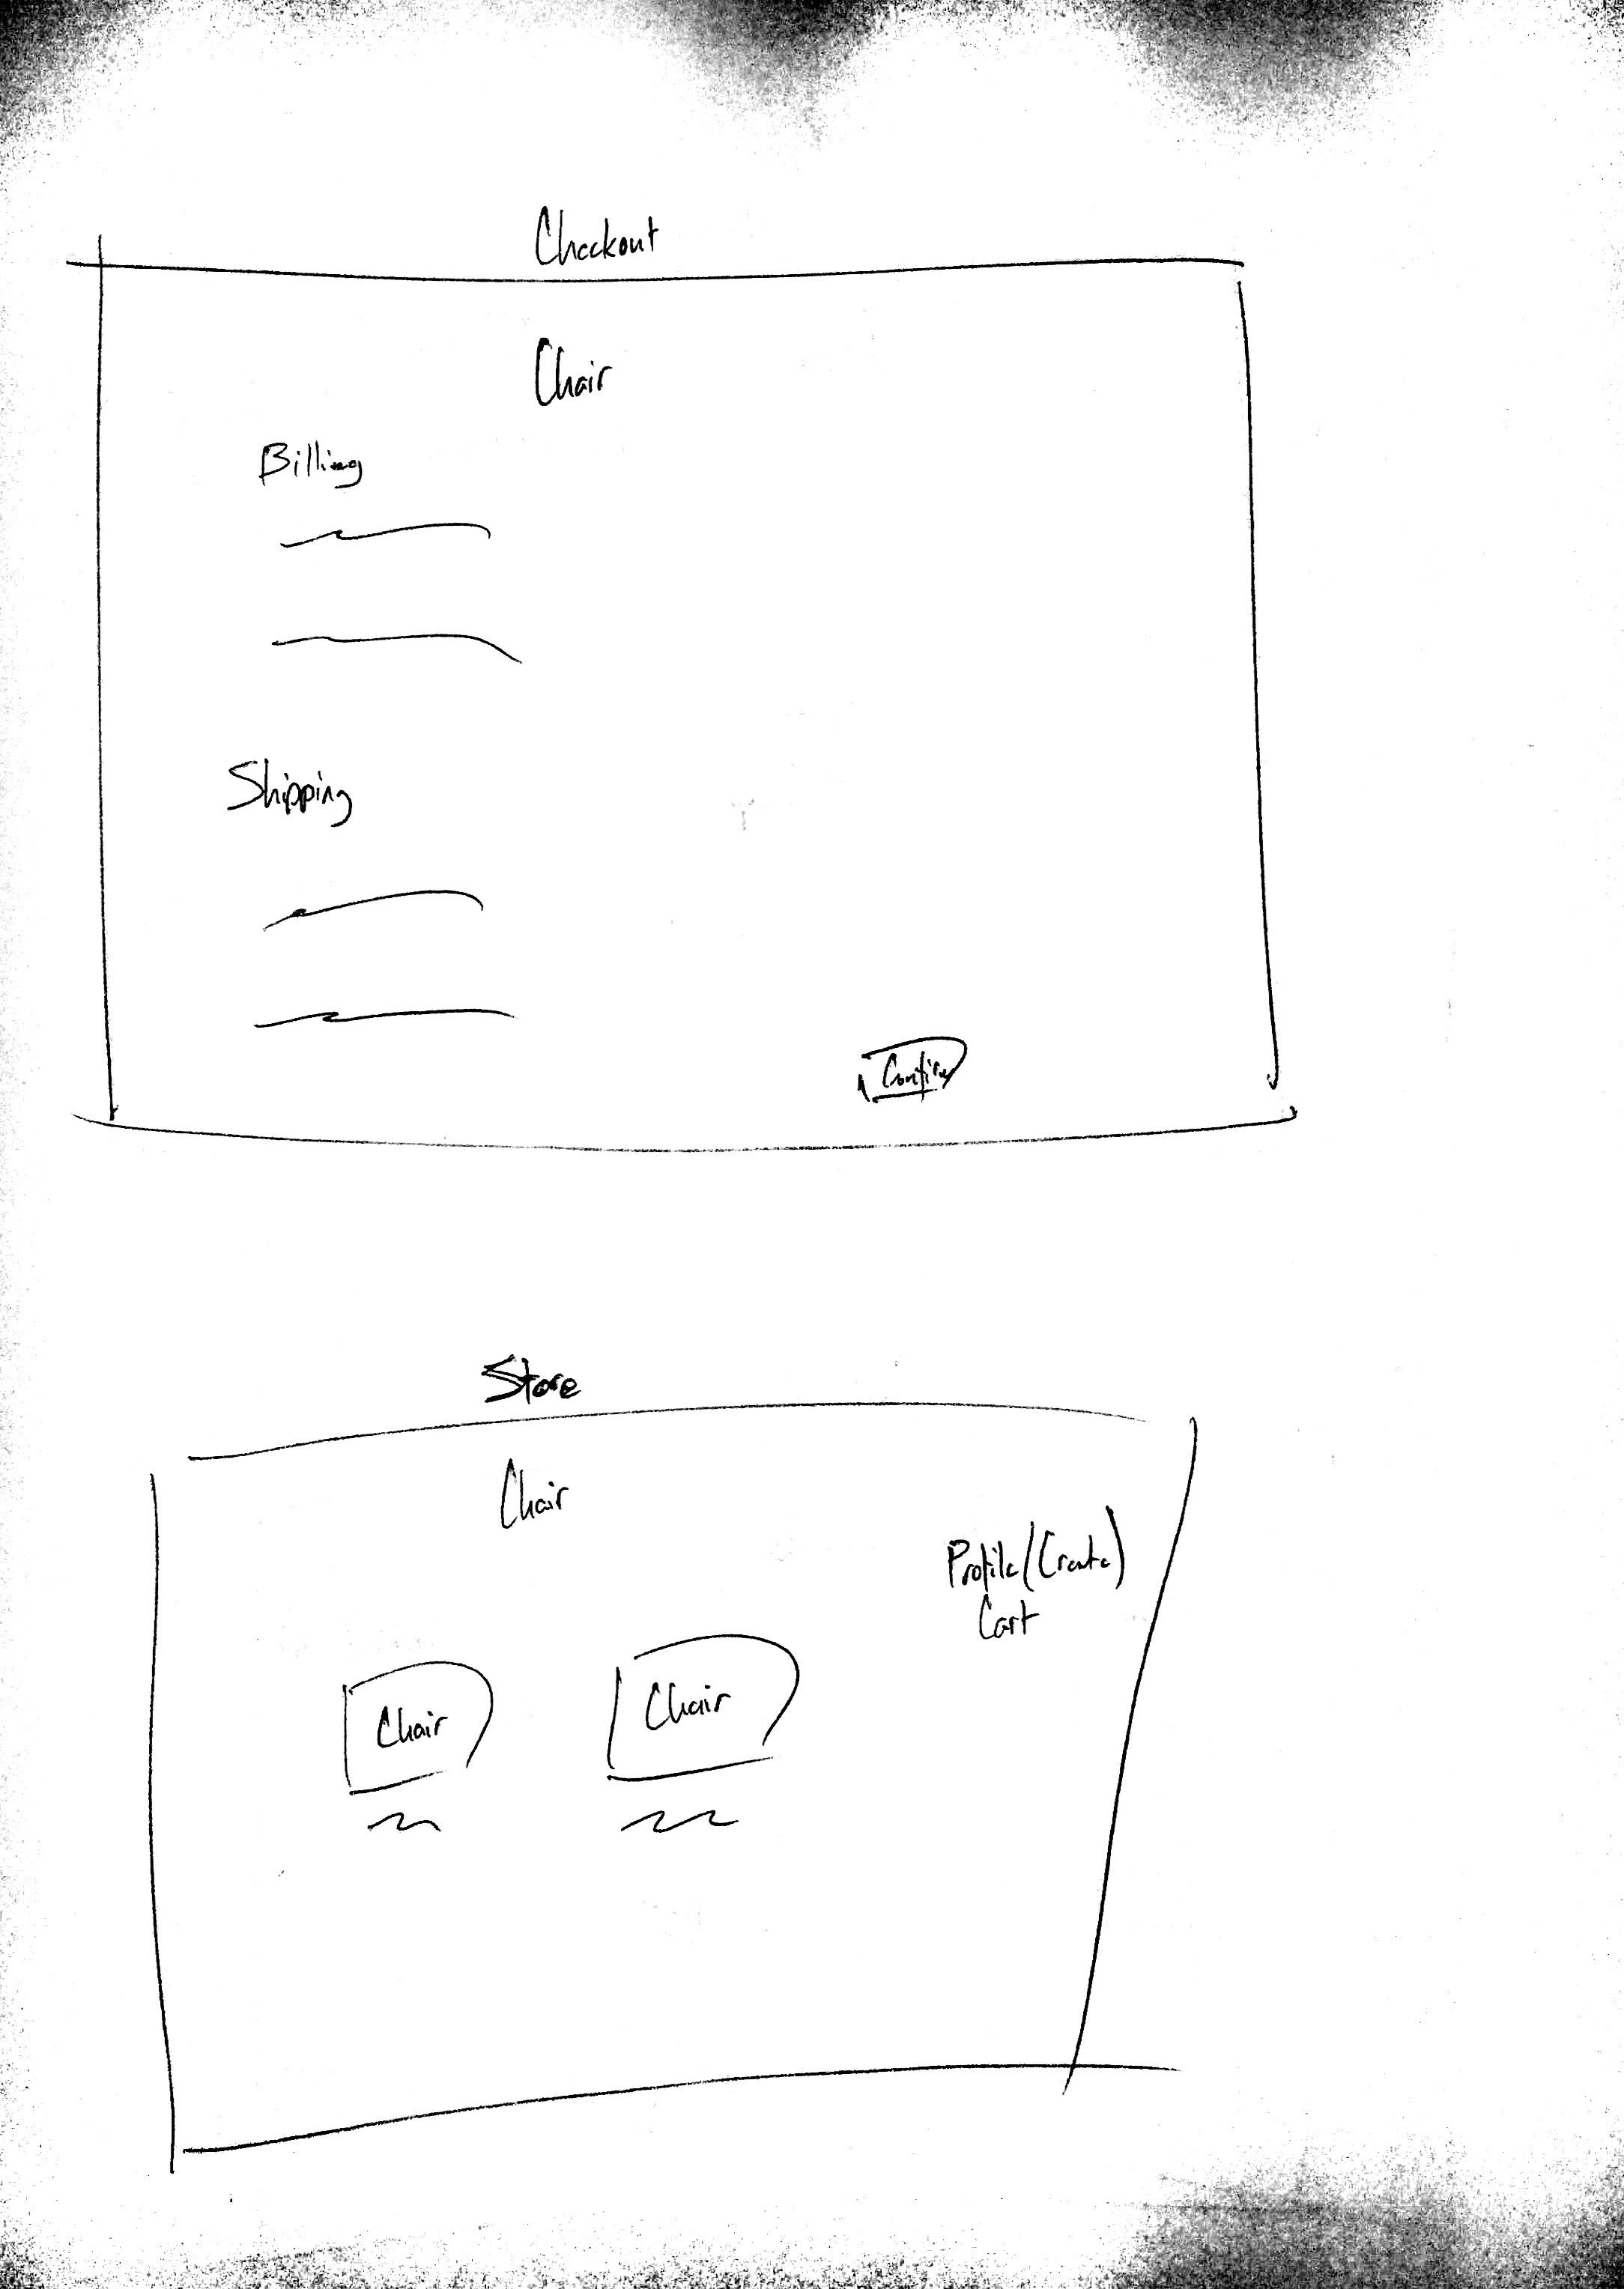 Checkout
Chair
Billing
Shipping
Confirm
Store
Chair
Profile/(Create)
Cart
Chair Chair